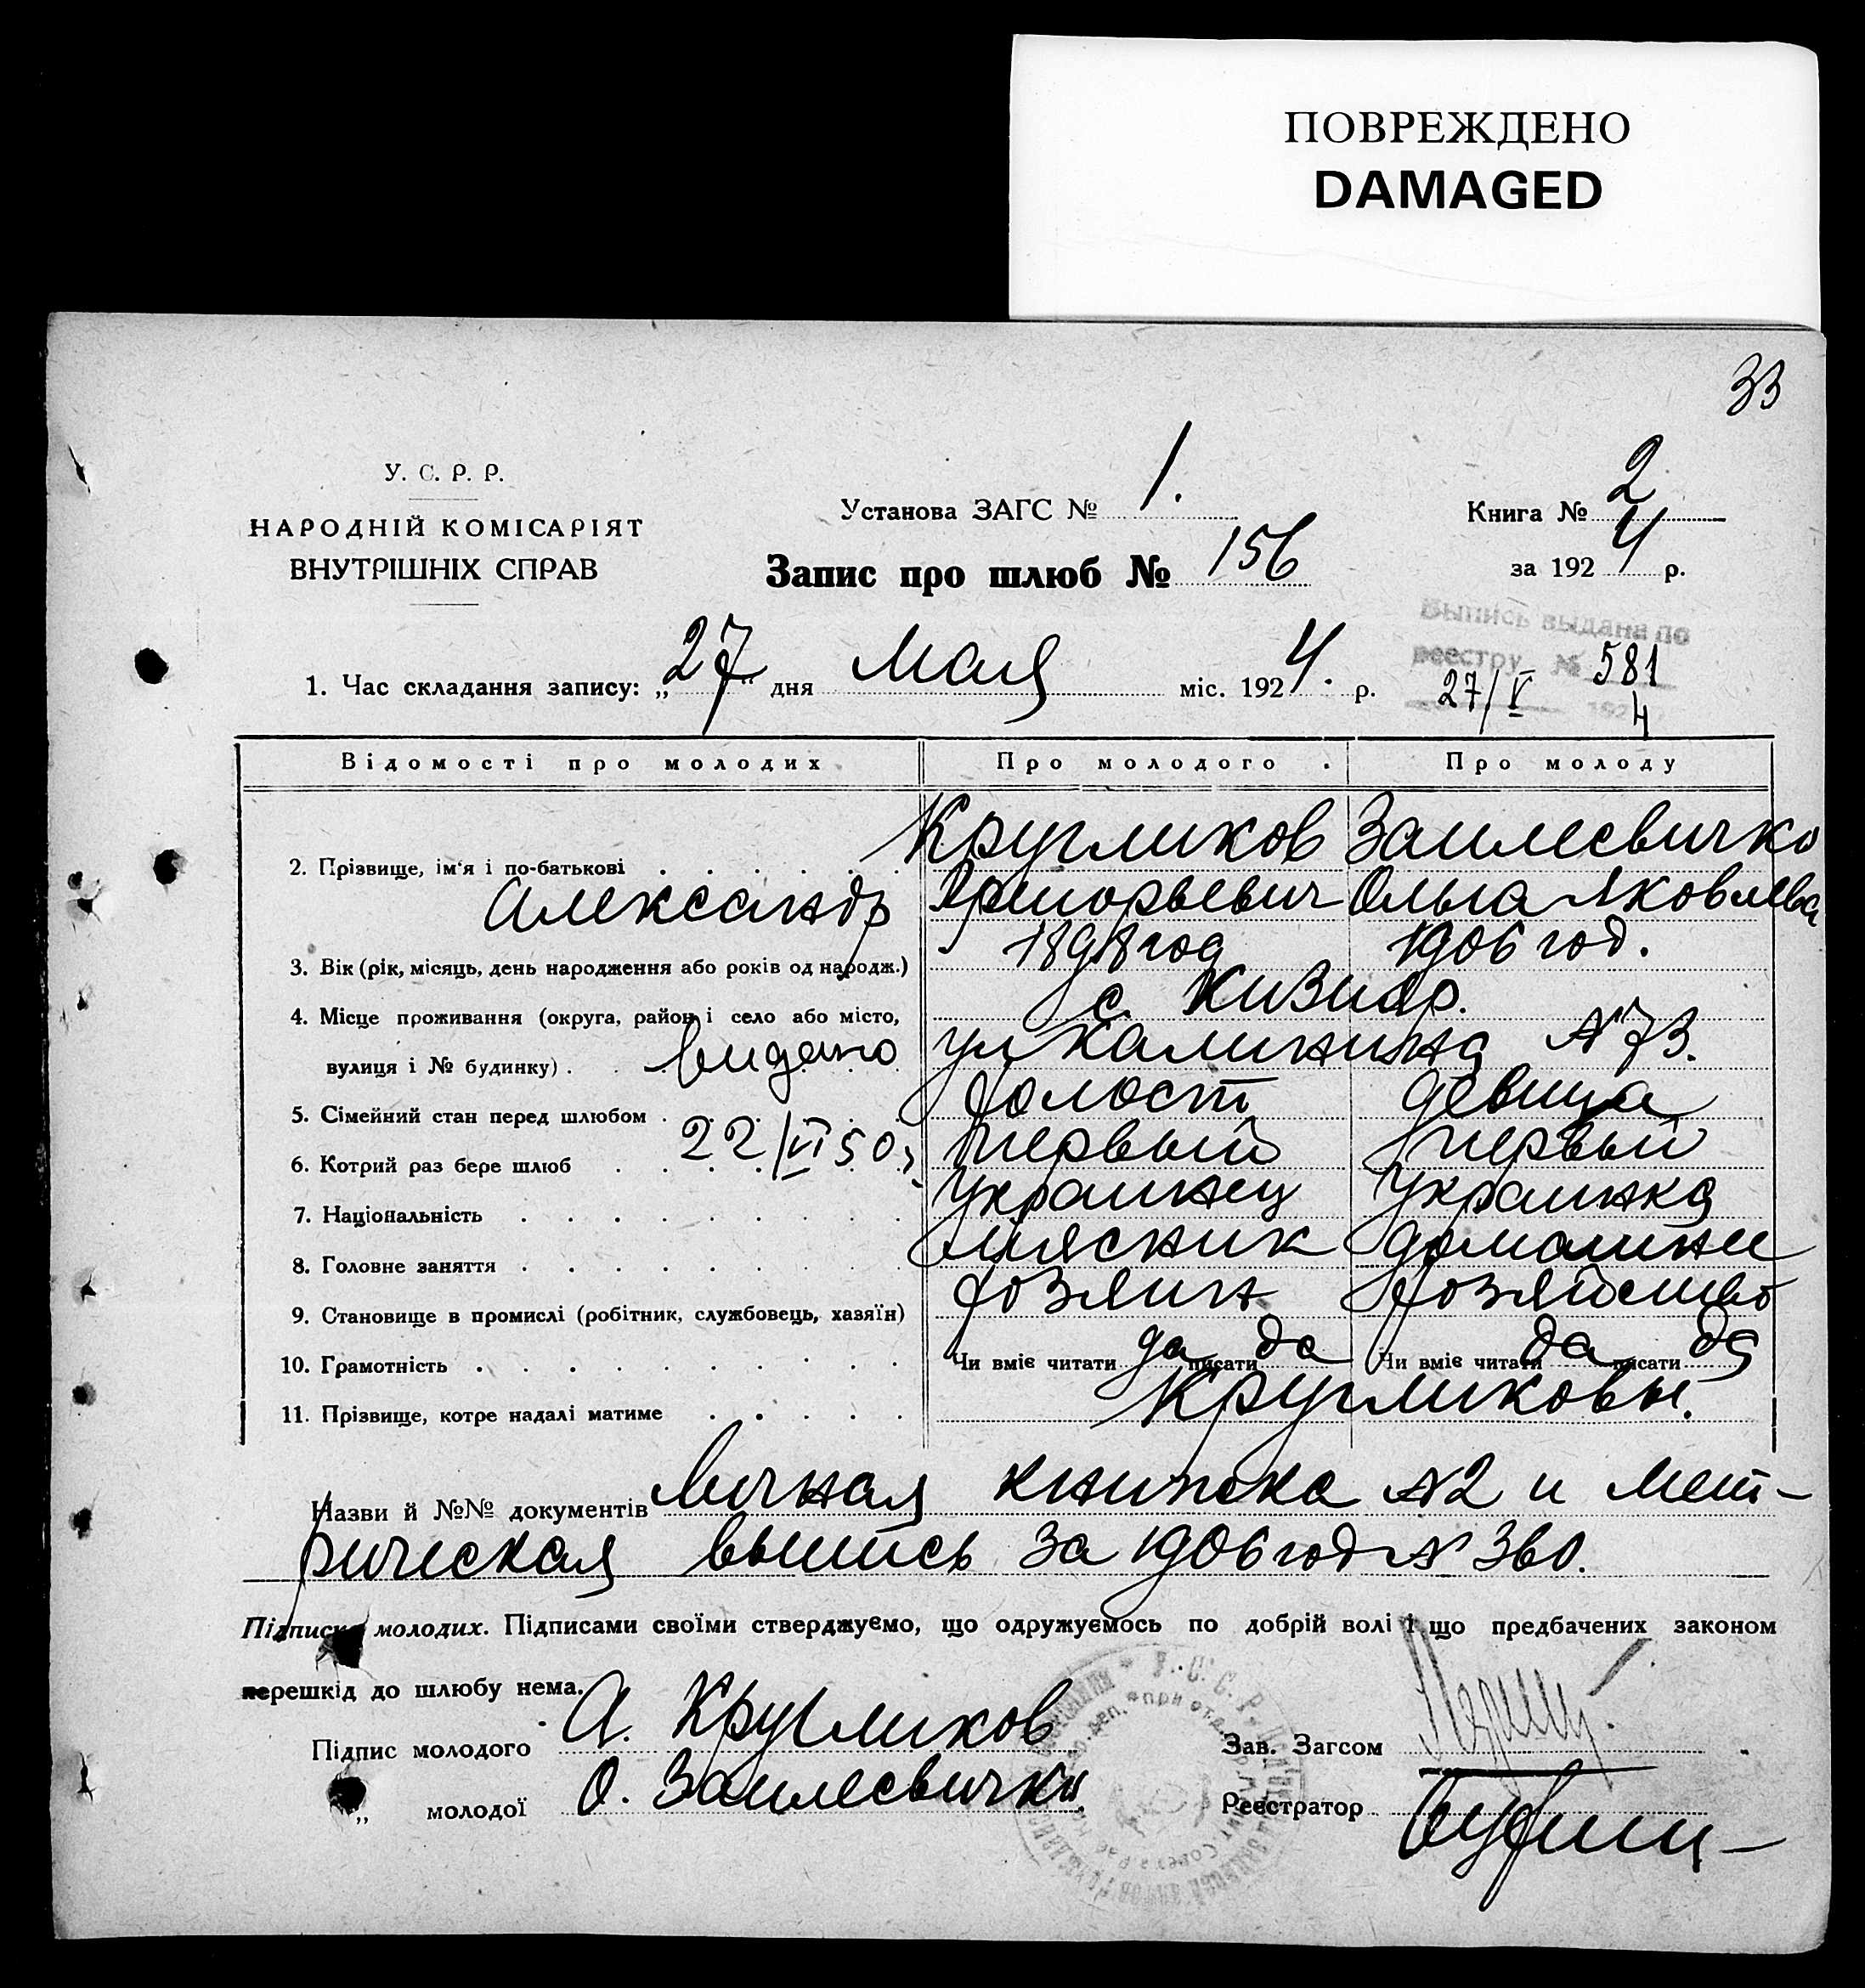 ПОВРЕЖДЕНО
DAMAGED
33
У. С. Р. Р.
НАРОДНІЙ КОМІСАРІЯТ
ВНУТРІШНІХ СПРАВ
Установа ЗАГС № 1.
Запис про шлюб № 156
Книга № 2
за 1924 р.
Выпись выдана по
реестру № 581
27/V 1924
1. Час складання запису: „27" дня Мая міс. 1924. р.
Відомості про молодих Про молодого Про молоду
2. Прізвище, ім'я і по-батькові Кругликов
Александр Григорьевич Ольга Яковлева
3. Вік (рік, місяць, день народження або років од народж.) 1898 год 1906 год.
4. Місце проживання (округа, район і село або місто, с.
вулиця і № будинку) видано ул Калинина № 73.
5. Сімейний стан перед шлюбом холост девица
22/VI 50
6. Котрий раз бере шлюб первый первый
7. Національність Украинец Украинка
8. Головне заняття мясник домашнее
9. Становище в промислі (робітник, службовець, хазяїн) хозяин хозяйство
10. Грамотність Чи вміє читати да писати да Чи вміє читати да писати да
11. Прізвище, котре надалі матиме Кругликовы.
Назви й №№ документів Личная книжка №2 и мет-
рическая выпись за 1906 год № 360.
Підписи молодих. Підписами своїми стверджуємо, що одружуємось по добрій волі і що предбачених законом
перешкід до шлюбу нема.
Підпис молодого А. Кругликов
Зав. Загсом
„ молодої О.
Реєстратор